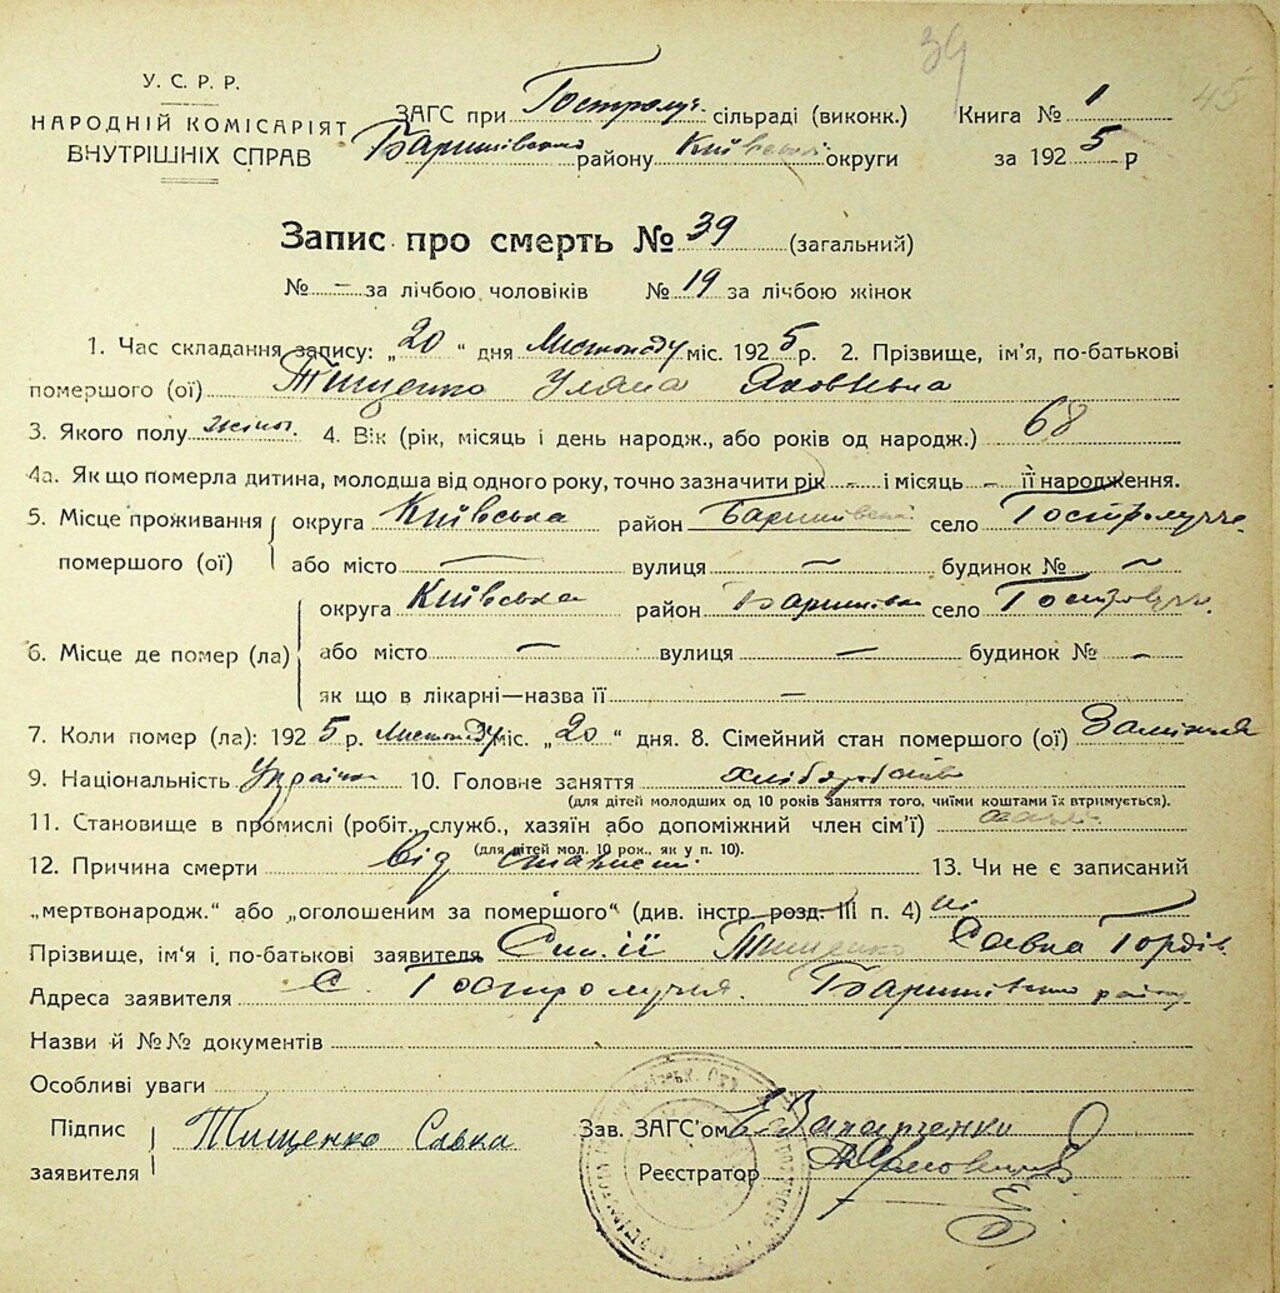 39
45
У. С. Р. Р.
НАРОДНІЙ КОМІСАРІЯТ
ВНУТРІШНІХ СПРАВ
ЗАГС при Гостролуч. сільраді (виконк.) Книга № 1
Баришівського району Київської округи за 1925 р
Запис про смерть № 39 (загальний)
№ — за лічбою чоловіків № 19 за лічбою жінок
1. Час складання запису: „20“ дня Листопаду міс. 1925 р. 2. Прізвище, ім'я, по-батькові
помершого (ої) Тищенко Уляна Яковівна
3. Якого полу жіноч. 4. Вік (рік, місяць і день народж., або років од народж.) 68
4а. Як що померла дитина, молодша від одного року, точно зазначити рік — і місяць — її народження.
5. Місце проживання помершого (ої) округа Київська район Баришівський село Гостролуччє
або місто — вулиця — будинок № —
6. Місце де помер (ла) округа Київська район Баришівськ село Гостролуччє
або місто — вулиця — будинок № —
як що в лікарні—назва її —
7. Коли помер (ла): 1925 р. Листопаду міс. „20“ дня. 8. Сімейний стан помершого (ої) Заміжня
9. Національність Українка 10. Головне заняття хліборобство
(для дітей молодших од 10 років заняття того, чиїми коштами їх втримується).
11. Становище в промислі (робіт., служб., хазяїн або допоміжний член сім'ї)
(для дітей мол. 10 рок., як у п. 10).
12. Причина смерти від старости 13. Чи не є записаний
„мертвонародж.“ або „оголошеним за помершого“ (див. інстр. розд. III п. 4) ні
Прізвище, ім'я і по-батькові заявителя Син її Тищенко Савка Гордів.
Адреса заявителя с. Гостролуччя. Баришівського району
Назви й №№ документів
Особливі уваги
Підпис заявителя Тищенко Савка
Зав. ЗАГС'ом
Реєстратор